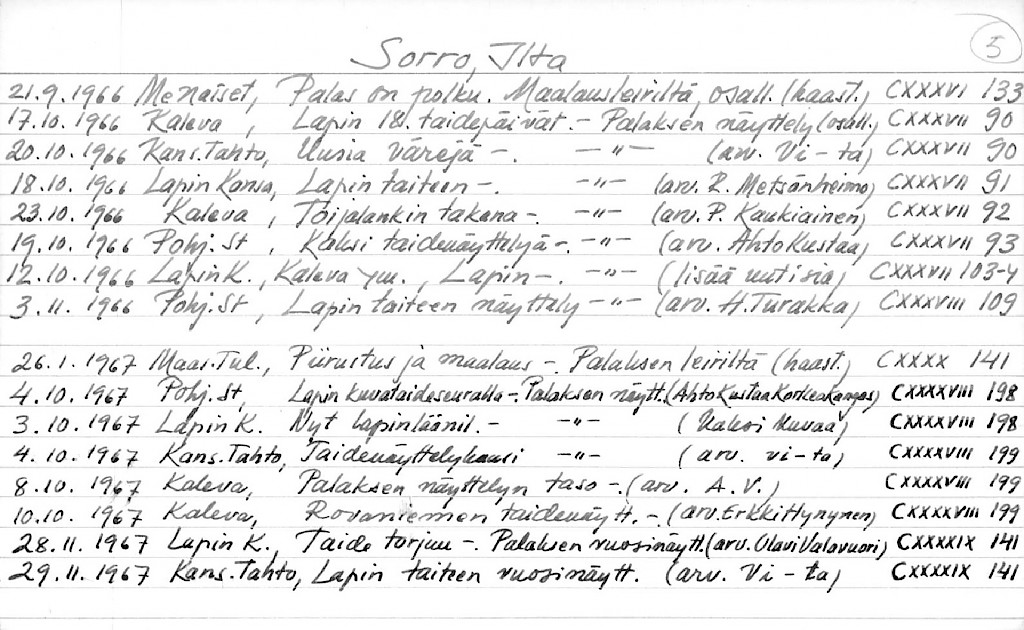 5
Sorro, Ilta
21.9.1966 Me Naiset, Palas on polku. Maalausleiriltä, osall. (haast.) CXXXVI 133
17.10.1966 Kaleva, Lapin 18. taidepäivät. - Palaksen näyttely (osall.) CXXXVII 90
20.10.1966 Kans.Tahto, Uusia värejä -. -"- (arv. Vi-ta) CXXXVII 90
18.10.1966 Lapin Kansa, Lapin taiteen -. -"- (arv. R. Metsänheimo) CXXXVII 91
23.10.1966 Kaleva, Toijalankin takana -. -"- (arv. P. Kaukiainen) CXXXVII 92
19.10.1966 Pohj.St, Kaksi taidenäyttelyä -. -"- (arv. Ahto Kustaa) CXXXVII 93
12.10.1966 Lapin K., Kaleva ym., Lapin -. -"- (lisää uutisia) CXXXVII 103-4
3.11.1966 Pohj.St, Lapin taiteen näyttely -"- (arv. H. Turakka) CXXXVIII 109
26.1.1967 Maas.Tul., Piirustus ja maalaus -. Palaksen leiriltä (haast.) CXXXX 141
4.10.1967 Pohj.St, Lapin kuvataideseuralla -. Palaksen näytt. (Ahto Kustaa Korkeakangas) CXXXXVIII 198
3.10.1967 Lapin K. Nyt lapinläänil. - -"- (Kaksi kuvaa) CXXXXVIII 198
4.10.1967 Kans.Tahto, Taidenäyttelykausi -"- (arv. vi-ta) CXXXXVIII 199
8.10.1967 Kaleva, Palaksen näyttelyn taso -. (arv. A.V.) CXXXXVIII 199
10.10.1967 Kaleva, Rovaniemen taidenäytt. -. (arv. Erkki Hynynen) CXXXXVIII 199
28.11.1967 Lapin K., Taide torjuu -. Palaksen vuosinäytt. (arv. Olavi Valavuori) CXXXXIX 141
29.11.1967 Kans.Tahto, Lapin taiteen vuosinäytt. (arv. Vi-ta) CXXXXIX 141